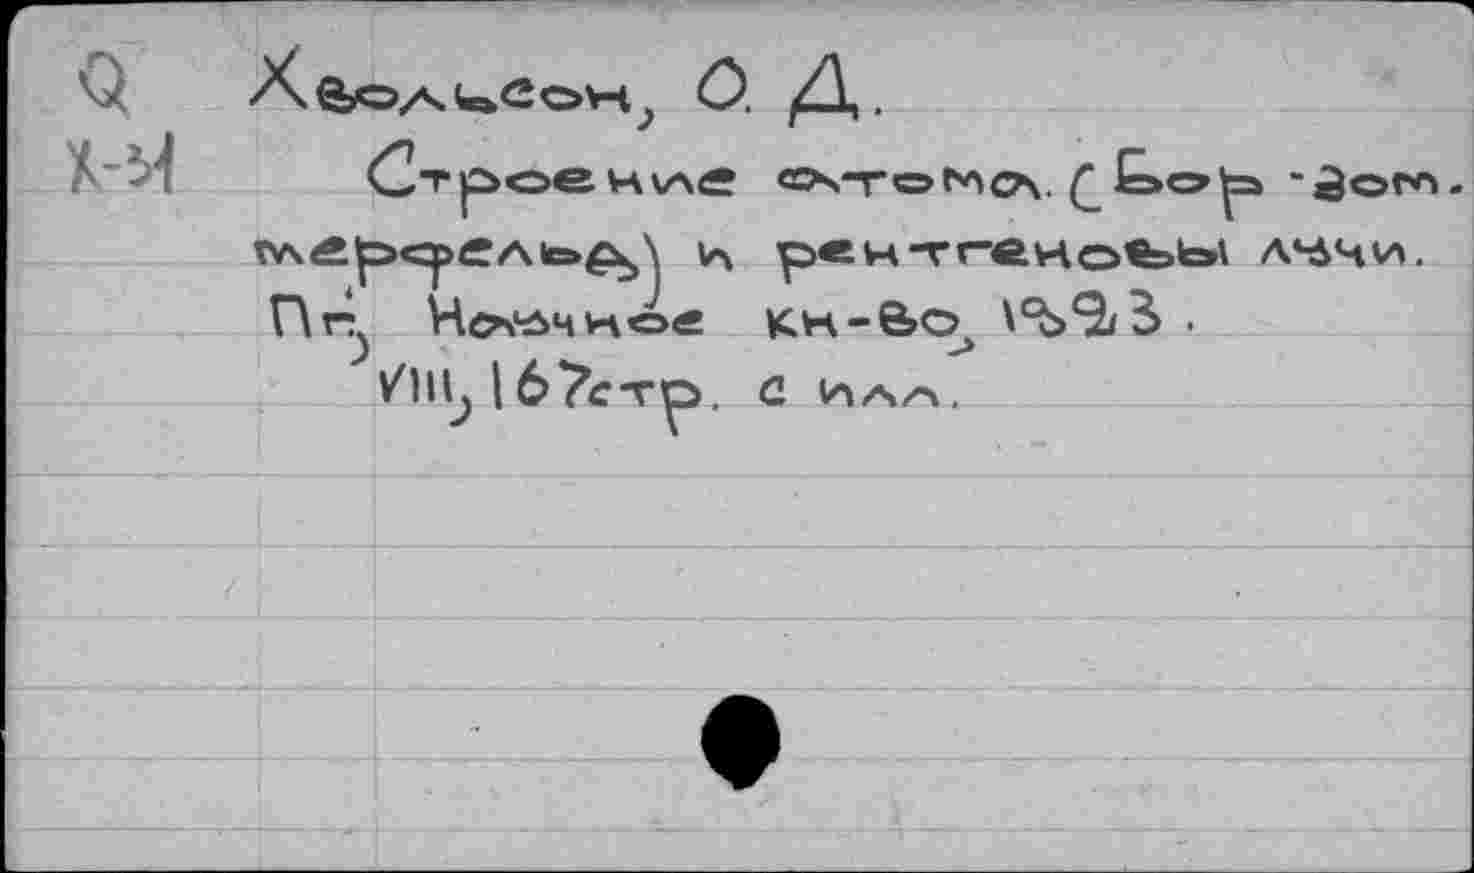 Q Хвольсон, О. Д.
Х-31 Строение атома. (Бор-Зом-
мерфельд) и рентгеновы лучи.
Пг., Научное кн-во, 1923.
VIII, 167 стр. с илл.